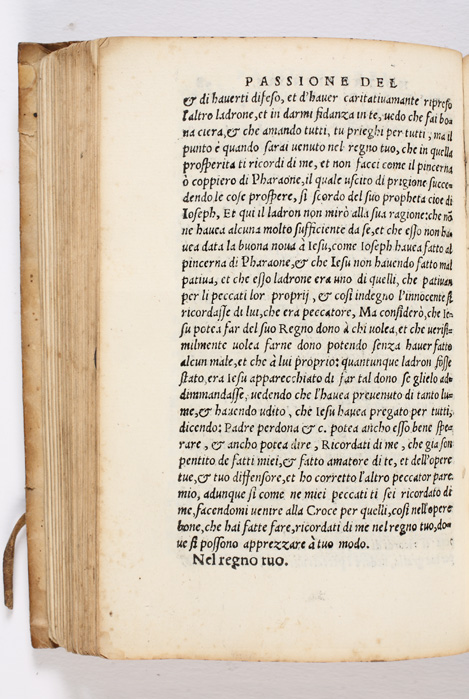 PASSIONE DEL
& di haverti difeso, et d'haver caritativamante ripreso
l'altro ladrone, et in darmi fidanza in te, uedo che fai bo⸗
na ciera, & che amando tutti, tu prieghi per tutti, ma il
punto è quando sarai uenuto nel regno tuo, che in quella
prosperità ti ricordi di me, et non facci come il pincerna
ò coppiero di Pharaone, il quale uscito di prigione succe⸗
dendo le cose prospere, si scordo del suo propheta cioe di
Ioseph, Et qui il ladron non mirò alla sua ragione: che nõ
ne havea alcuna molto sufficiente da se, et che esso non ha
uea data la buona noua à Iesu, come Ioseph havea fatto al
pincerna di Pharaone, & che Iesu non hauendo fatto mal
pativa, et che esso ladrone era uno di quelli, che pativan
per li peccati lor proprij, & così indegno l'innocente si
ricordasse di lui, che era peccatore, Ma considerò, che Ie⸗
su potea far del suo Regno dono à chi uolea, et che uerisi⸗
milmente uolea farne dono potendo senza hauer fatto
alcun male, et che à lui proprio: quantunque ladron fosse
stato, era Iesu apparecchiato di far tal dono se glielo ad⸗
dimmandasse, uedendo che l'havea prevenuto di tanto lu⸗
me, & hauendo udito, che Iesu havea pregato per tutti,
dicendo: Padre perdona & c. potea ancho esso bene spe⸗
rare, & ancho potea dire, Ricordati di me, che gia son
pentito de fatti miei, & fatto amatore di te, et dell'opere
tue, & tuo diffensore, et ho corretto l'altro peccator pare
mio, adunque si come ne miei peccati ti sei ricordato di
me, facendomi uentre alla Croce per quelli, così nell'opere
bone, che hai fatte fare, ricordati di me nel regno tuo, do⸗
ue si possono apprezzare à tuo modo.
Nel regno tuo.